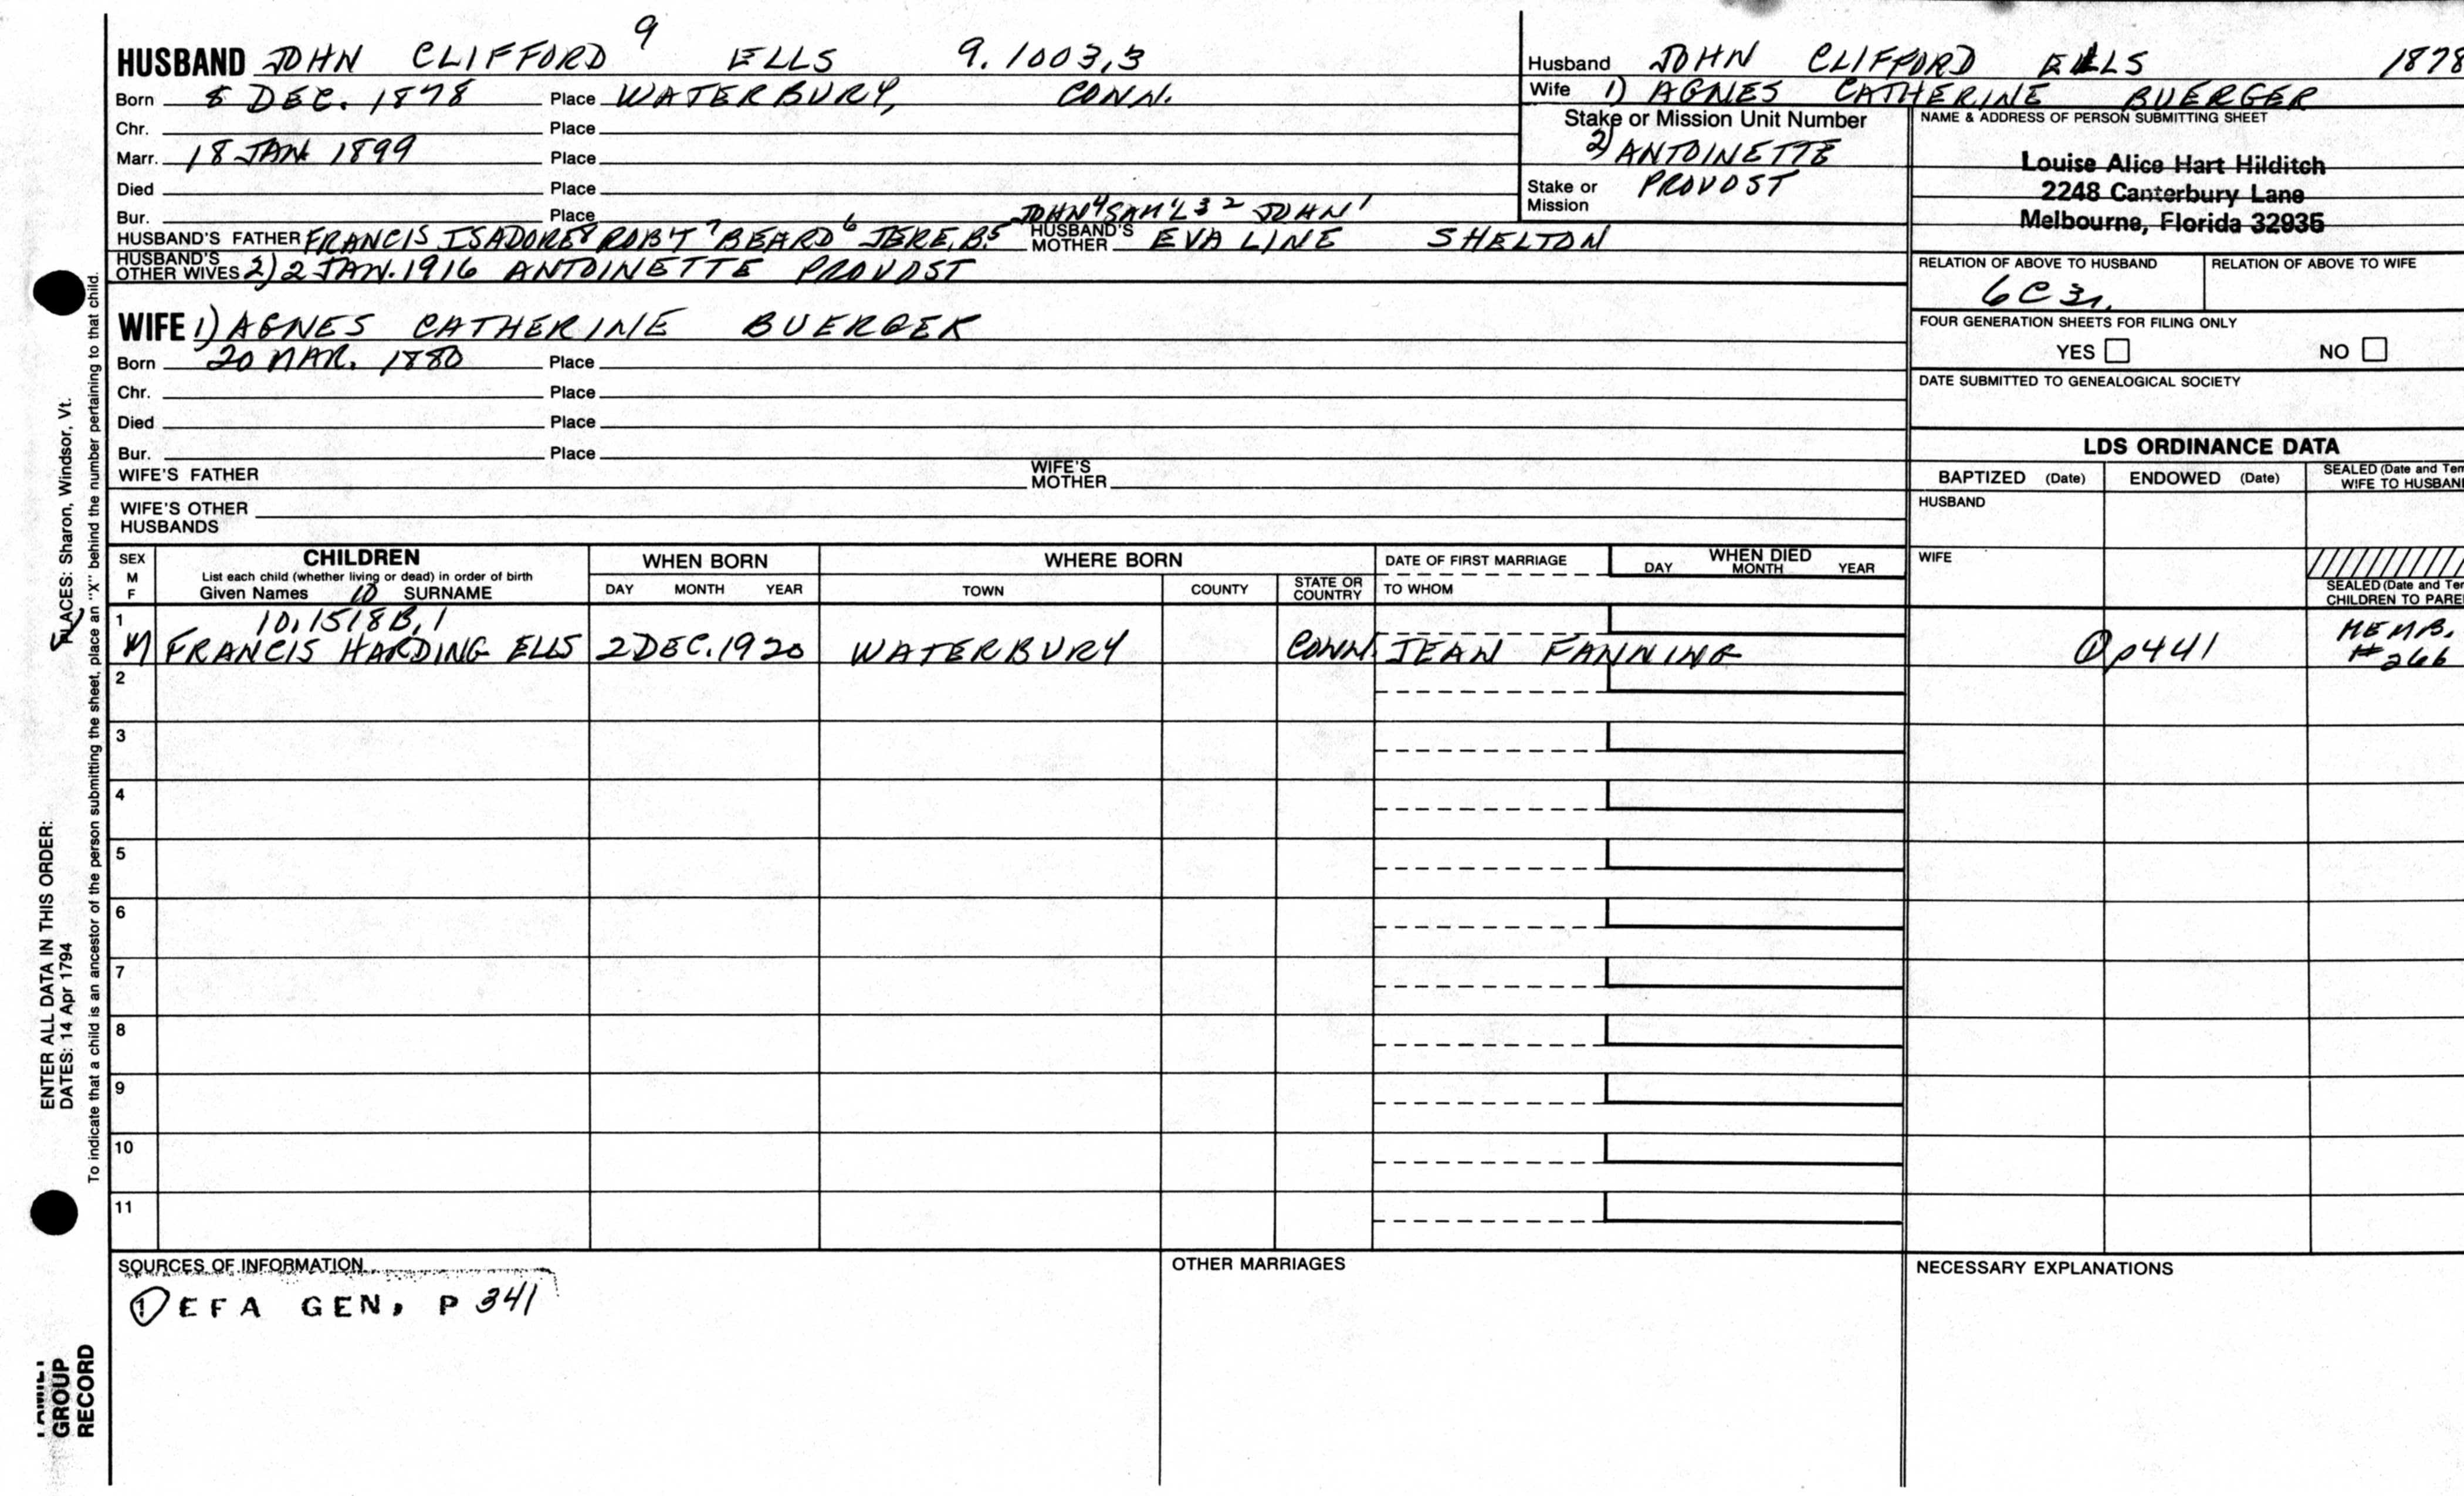 HUSBAND JOHN CLIFFORD 9 ELLS 9.1003,3
Born 8 DEC. 1878 Place WATERBURY, CONN.
Chr. Place
Marr. 18 JAN. 1899 Place
Died Place
Bur. Place JOHN 4 SAM'L 3 2 JOHN 1
HUSBAND'S FATHER FRANCIS ISADORE 8 ROB'T 7 BEARD 6 JERE. B. 5 HUSBAND'S MOTHER EVA LINE SHELTON
HUSBAND'S OTHER WIVES 2) 2 JAN. 1916 ANTOINETTE PROVOST
WIFE 1) AGNES CATHERINE BUERGER
Born 20 MAR. 1880 Place
Chr. Place
Died Place
Bur. Place
WIFE'S FATHER WIFE'S MOTHER
WIFE'S OTHER HUSBANDS
Husband JOHN CLIFFORD ELLS 1878
Wife 1) AGNES CATHERINE BUERGER
Stake or Mission Unit Number
2) ANTOINETTE
PROVOST
Stake or Mission
NAME & ADDRESS OF PERSON SUBMITTING SHEET
Louise Alice Hart Hilditch
2248 Canterbury Lane
Melbourne, Florida 32935
RELATION OF ABOVE TO HUSBAND RELATION OF ABOVE TO WIFE
6C3r.
FOUR GENERATION SHEETS FOR FILING ONLY
YES NO
DATE SUBMITTED TO GENEALOGICAL SOCIETY
LDS ORDINANCE DATA
BAPTIZED (Date) ENDOWED (Date) SEALED (Date and Tem
WIFE TO HUSBAN
HUSBAND
WIFE
SEALED (Date and Tem
CHILDREN TO PARE
SEX M F
CHILDREN
List each child (whether living or dead) in order of birth
Given Names 10 SURNAME
WHEN BORN
DAY MONTH YEAR
WHERE BORN
TOWN COUNTY STATE OR COUNTRY
DATE OF FIRST MARRIAGE
TO WHOM
WHEN DIED
DAY MONTH YEAR
1 10,1518B,1
M FRANCIS HARDING ELLS 2 DEC. 1920 WATERBURY CONN. JEAN FANNING ① p441 MEMB. #266
2
3
4
5
6
7
8
9
10
11
SOURCES OF INFORMATION
① EFA GEN, P 341
OTHER MARRIAGES
NECESSARY EXPLANATIONS
ENTER ALL DATA IN THIS ORDER:
DATES: 14 Apr 1794
PLACES: Sharon, Windsor, Vt.
To indicate that a child is an ancestor of the person submitting the sheet, place an "X" behind the number pertaining to that child.
FAMILY
GROUP
RECORD